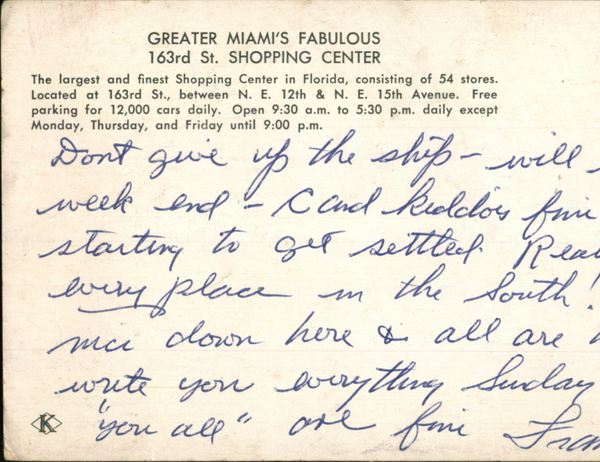 GREATER MIAMI'S FABULOUS
163rd St. SHOPPING CENTER
The largest and finest Shopping Center in Florida, consisting of 54 stores.
Located at 163rd St., between N. E. 12th & N. E. 15th Avenue. Free
parking for 12,000 cars daily. Open 9:30 a.m. to 5:30 p.m. daily except
Monday, Thursday, and Friday until 9:00 p.m.
Dont give up the ship - will
week end - C and kiddos fine
starting to get settled. Real
every place in the South!
down here & all are
write you everything Sunday
"you all" are fine
K